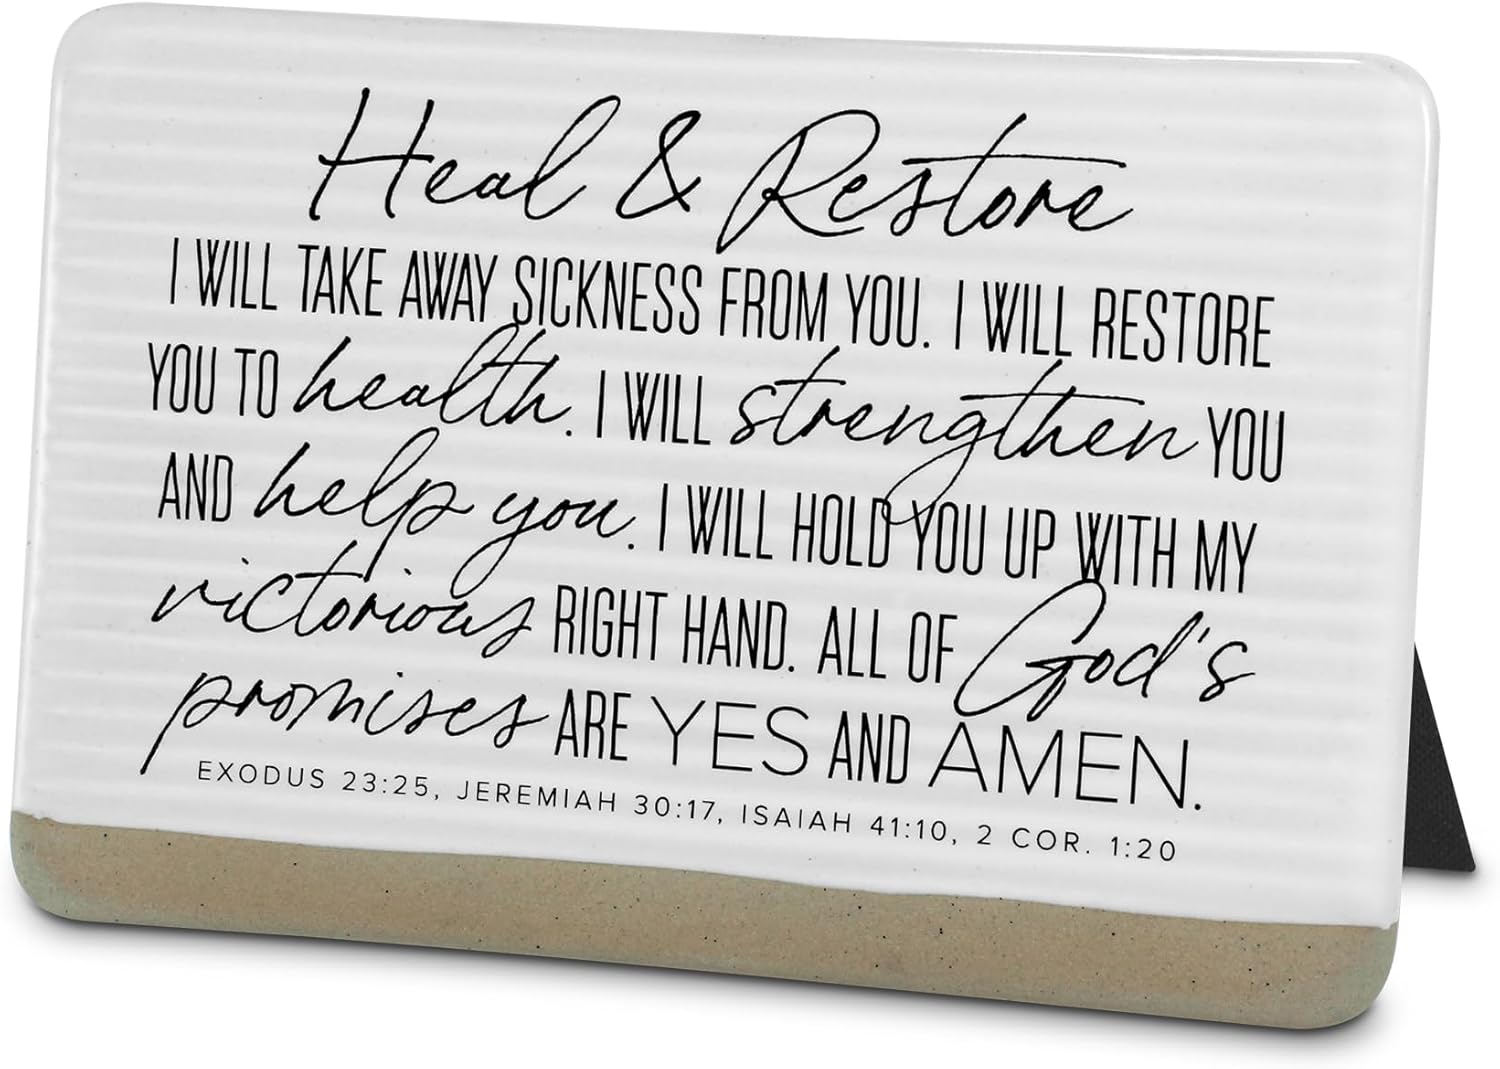 Heal & Restore
I WILL TAKE AWAY SICKNESS FROM YOU. I WILL RESTORE
YOU TO health. I WILL strengthen YOU
AND help you. I WILL HOLD YOU UP WITH MY
victorious RIGHT HAND. ALL OF God's
promises ARE YES AND AMEN.
EXODUS 23:25, JEREMIAH 30:17, ISAIAH 41:10, 2 COR. 1:20